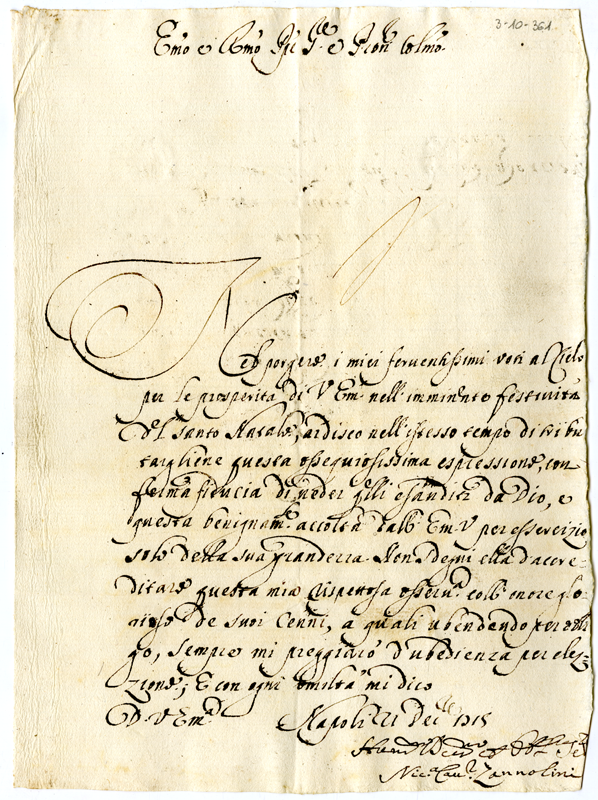 3-10-361
Emo e Rmo Sig.re e Pron Colmo
Nel porgere i miei feruentissimi voti al Cielo
per le prosperità di V Em.a nell'imminente festiuità
del Santo Natale, ardisco nell'istesso tempo di tribu
targliene questa ossequiosissima espressione, con
ferma fiducia di ueder q.lli esauditi da Dio, e
questa benignam.te accolta dall' Em.a V per essercizio
solo della sua grandezza. Non sdegni ella d'accre-
ditare questa mia rispettosa osseru.a coll' onore glo-
rioso de suoi Cenni, a quali ubendendo per obli
go, sempre mi preggiarò d'ubedienza per elez-
zione; E con ogni umiltà mi dico
D. V Em.a Napoli 21 Dec.re 1715
Nic.o Zannolini